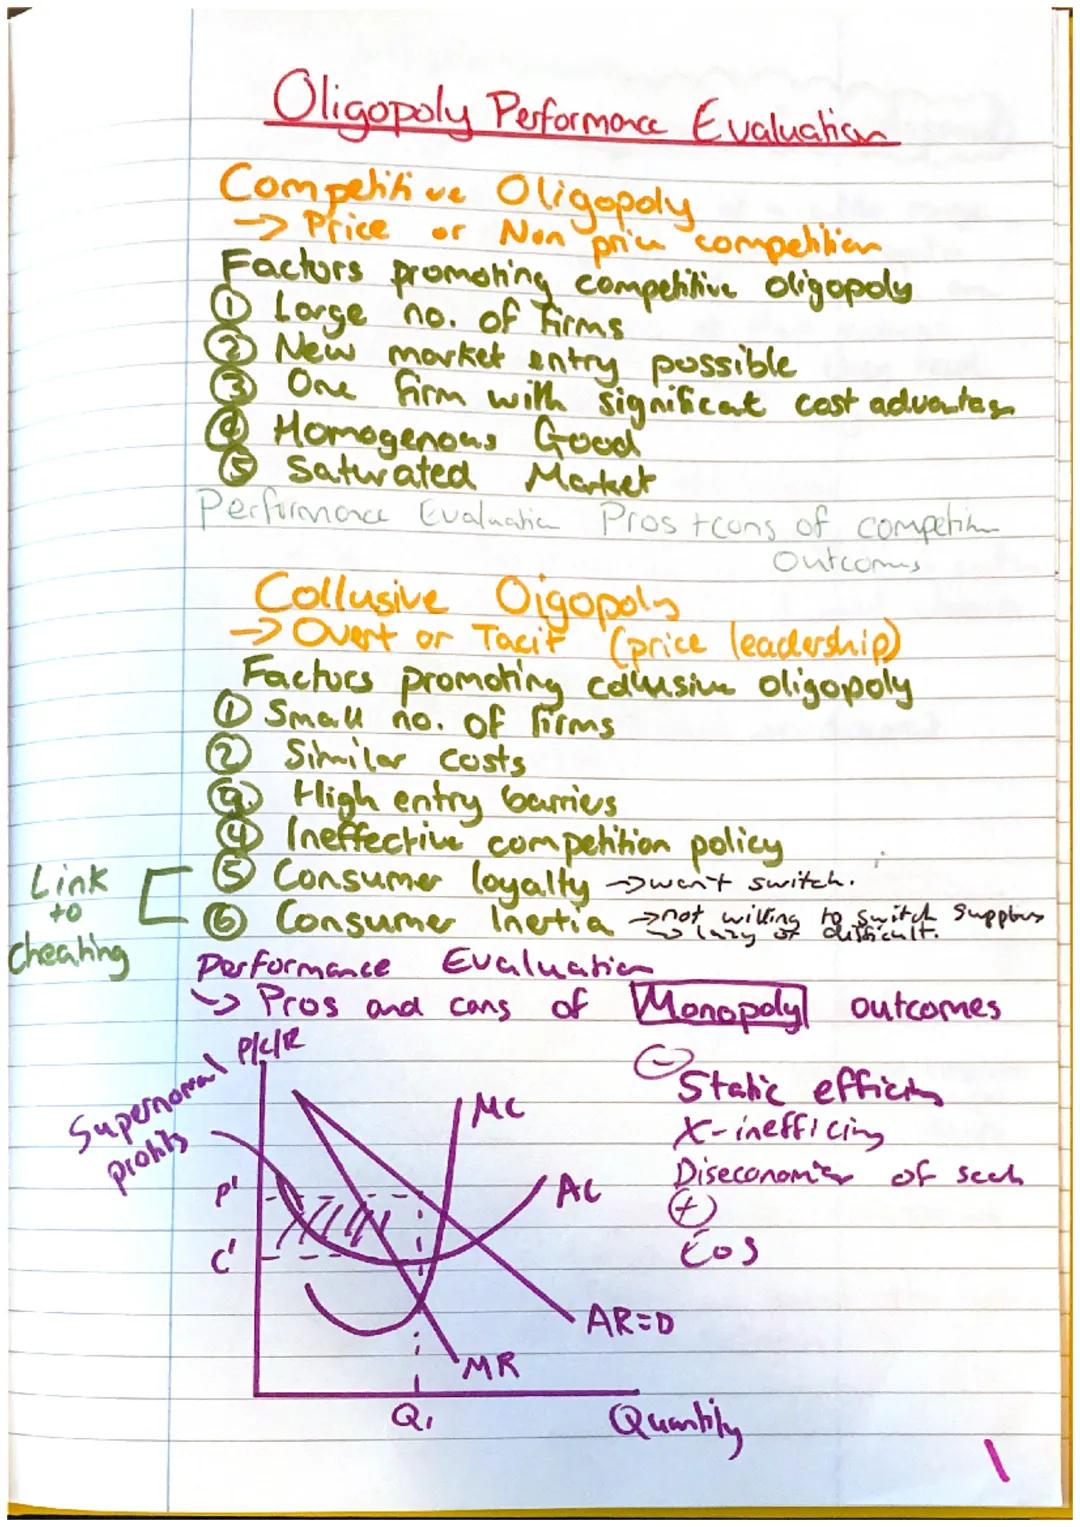 Oligopoly Performance Evaluation
Competitive Oligopoly
→ Price or Non price competition
Factors promoting competitive oligopoly
① Large no. of firms
② New market entry possible
③ One firm with significant cost advantage
④ Homogenous Good
⑤ Saturated Market
Performance Evaluation Pros + cons of competitive
Outcomes
Collusive Oigopoly
→ Overt or Tacit (price leadership)
Factors promoting collusive oligopoly
① Small no. of firms
② Similar costs
③ High entry barriers
④ Ineffective competition policy
⑤ Consumer loyalty → won't switch.
⑥ Consumer Inertia → not willing to switch suppliers
→ lazy or difficult.
Link
to
cheating
Performance Evaluation
↳ Pros and cons of Monopoly outcomes
P/C/R
Supernormal
profits
P'
C'
MC
AC
AR=D
MR
Q1
Quantity
⊖
Static efficiency
X-inefficiency
Diseconomies of scale
⊕
EoS